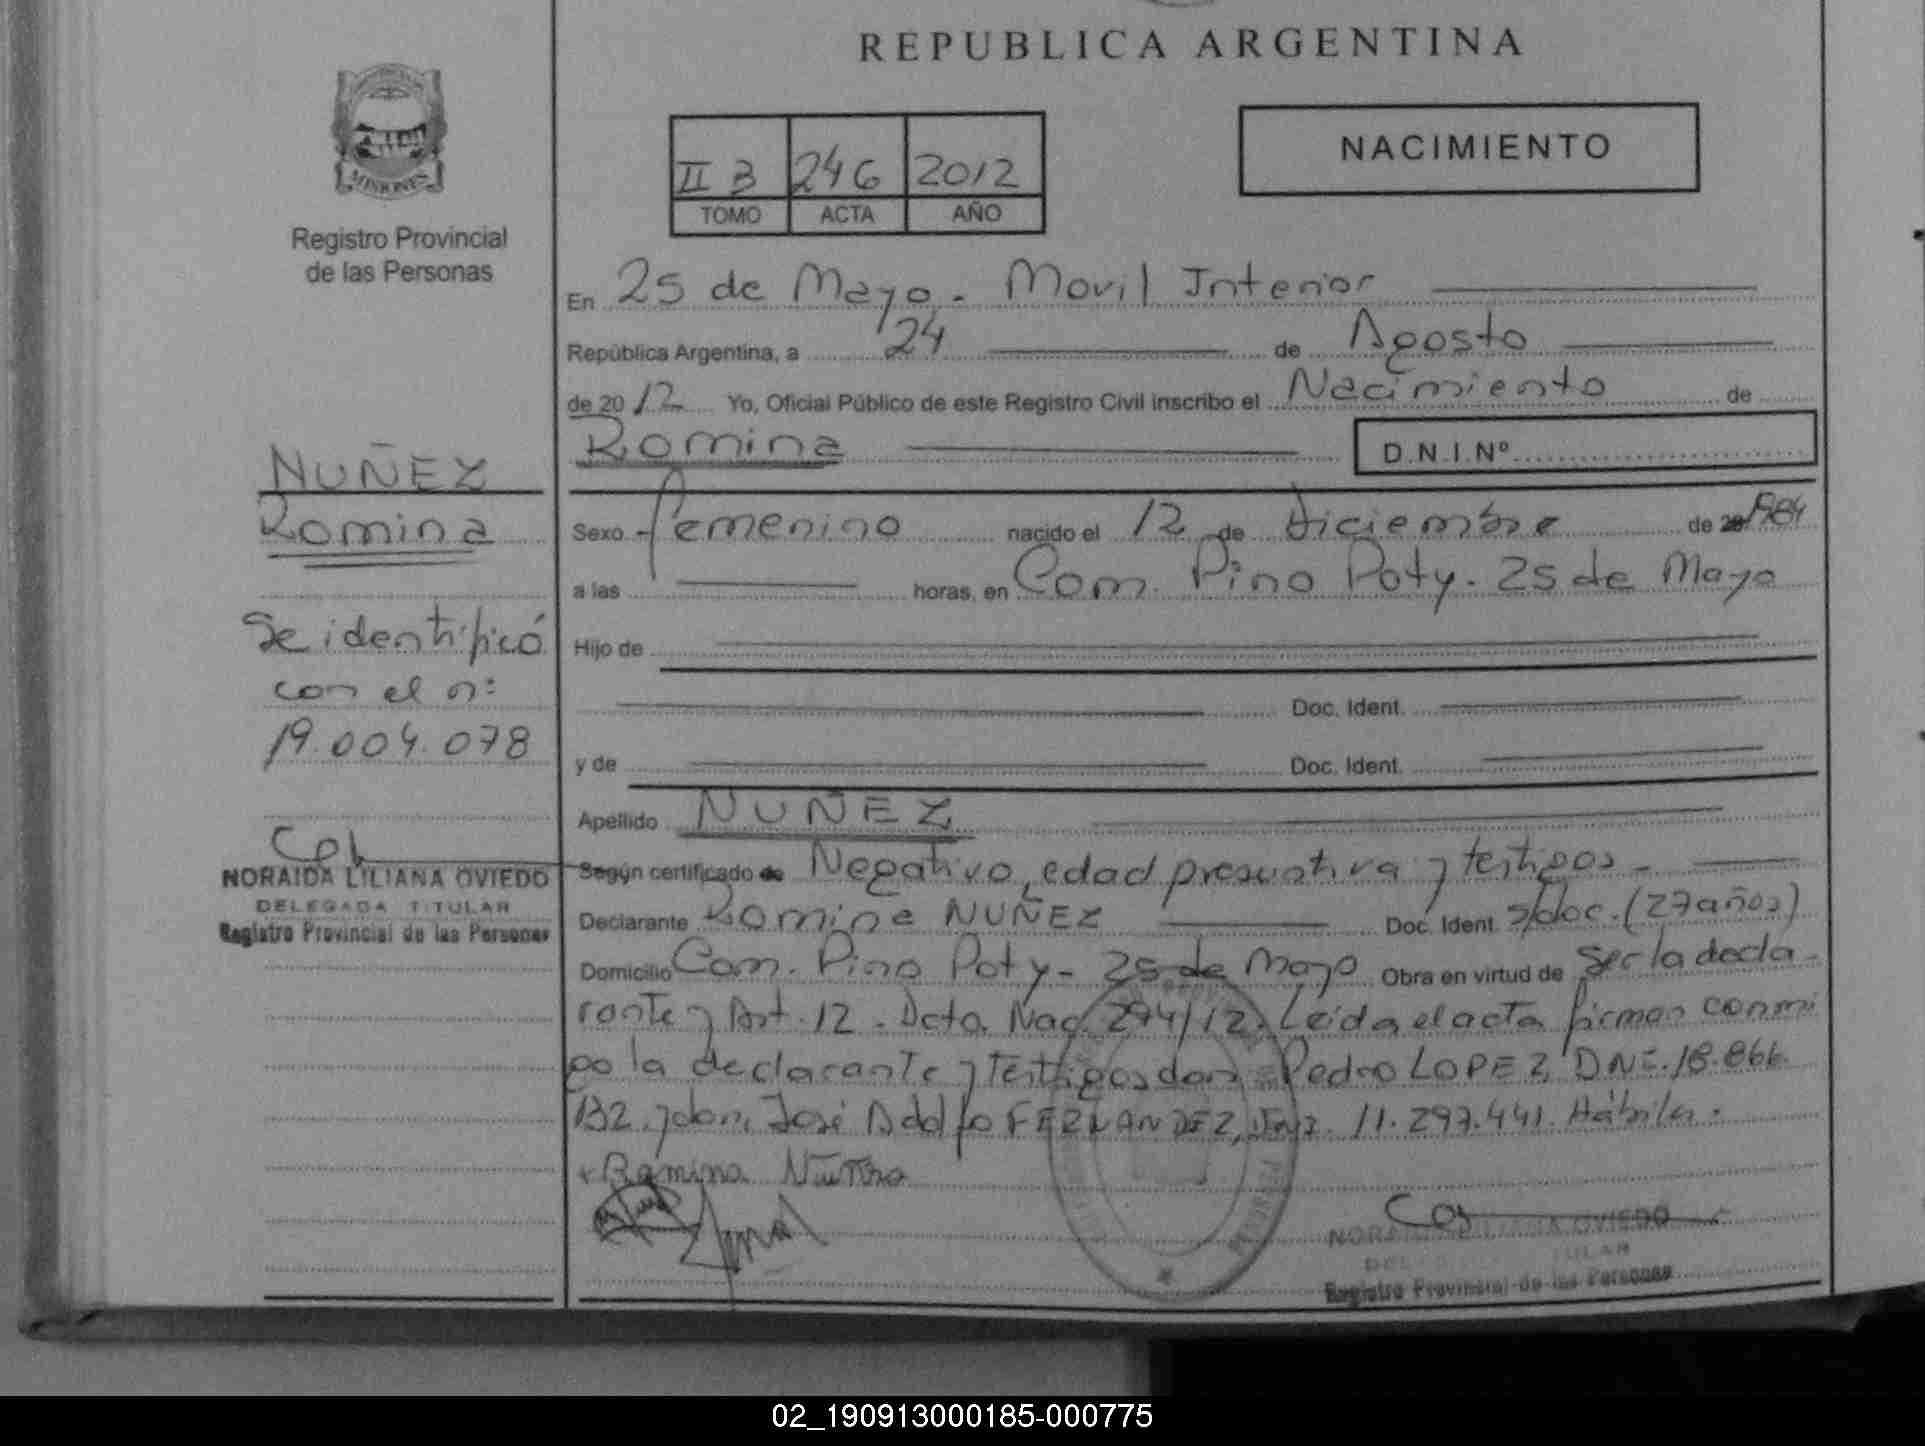 REPUBLICA ARGENTINA
MISIONES
Registro Provincial
de las Personas
II B 246 2012
TOMO ACTA AÑO
NACIMIENTO
En 25 de Mayo - Movil Interior
República Argentina, a 24 de Agosto
de 2012 Yo, Oficial Público de este Registro Civil inscribo el Nacimiento de
Romina D.N.I.Nº
NUÑEZ
Romina
Se identificó
con el nº
19.004.078
NORAIDA LILIANA OVIEDO
DELEGADA TITULAR
Registro Provincial de las Personas
Sexo femenino nacido el 12 de diciembre de 1984
a las horas, en Com. Pino Poty. 25 de Mayo
Hijo de
Doc. Ident.
y de Doc. Ident.
Apellido NUÑEZ
Según certificado de Negativo, edad presuntiva y testigos -
Declarante Romina NUÑEZ Doc. Ident. s/doc. (27 años)
Domicilio Com. Pino Poty - 25 de Mayo Obra en virtud de ser la decla-
rante y Art. 12 - Dcto. Nac. 274/12. Leída el acta firman conmi
go la declarante y testigos don Pedro LOPEZ, DNI. 18.866.
132. y don José Adolfo FERNANDEZ, DNI. 11.297.441. Hábiles.
Romina
NORAIDA LILIANA OVIEDO
Registro Provincial de las Personas
02_190913000185-000775